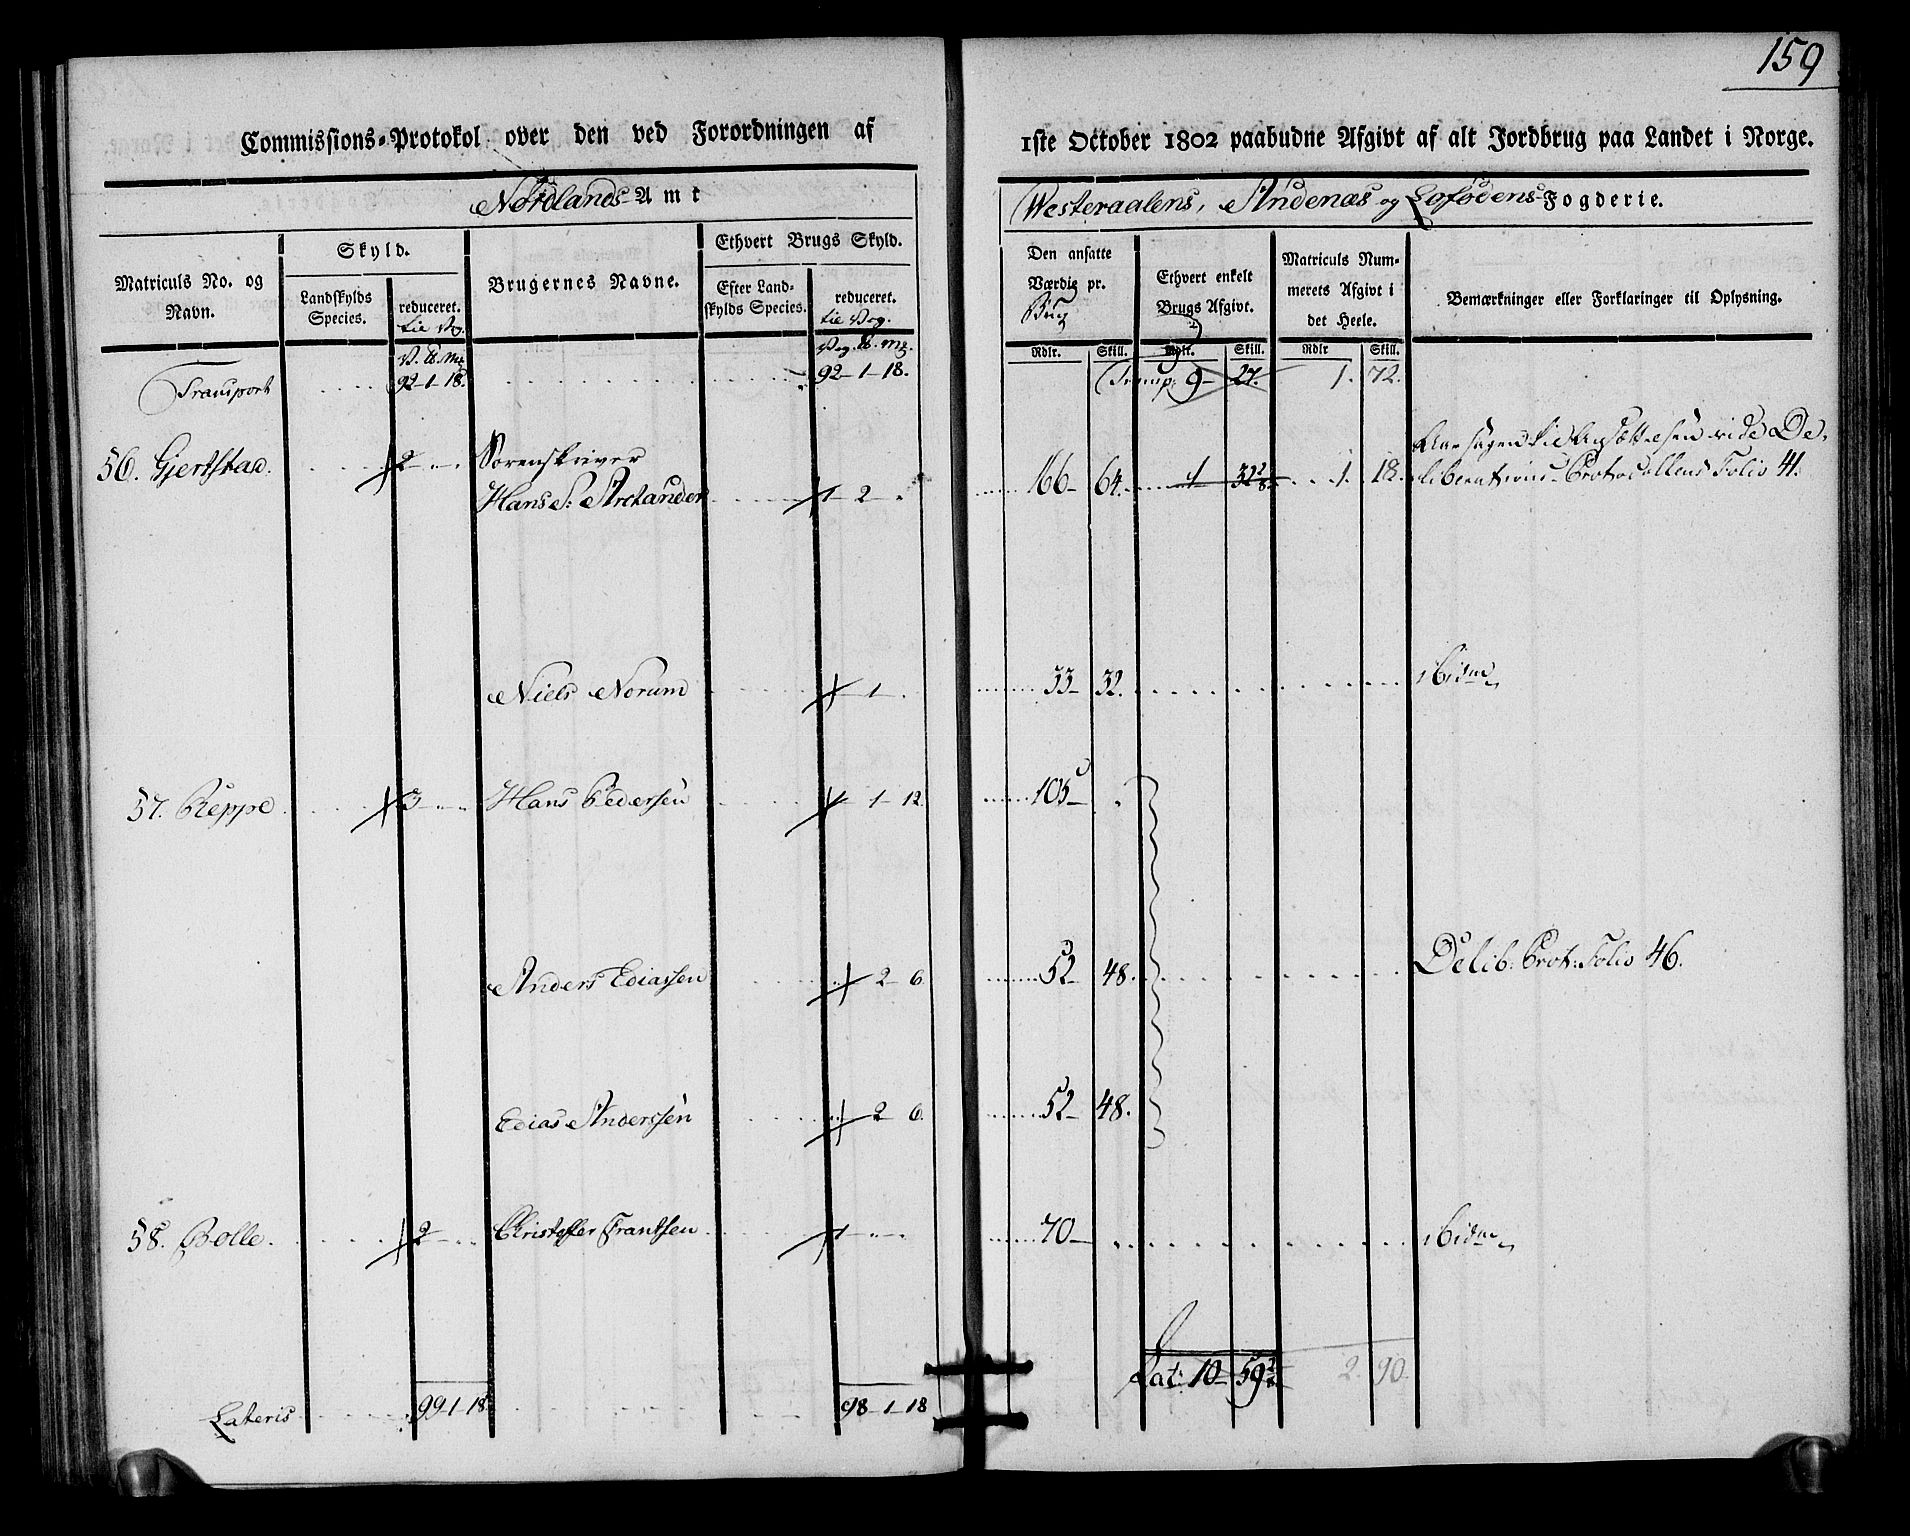 159
Commissions-Protokol over den ved Forordningen af
1ste October 1802 paabudne Afgivt af alt Jordbrug paa Landet i Norge.
Nordlands Amt
Westeraalens, Andenæs og Lofodens Fogderie.
Matriculs No. og Navn.
Skyld.
Landskylds Species.
reduceret. til Vog.
Brugernes Navne.
Ethvert Brugs Skyld.
Efter Landskylds Species.
reduceret. til Vog.
Den ansatte Værdie pr. Brug
Ethvert enkelt Brugs Afgivt.
Matriculs Nummerets Afgivt i det Heele.
Bemærkninger eller Forklaringer til Oplysning.
Rdlr. Skill. Rdlr. Skill. Rdlr Skill.
Transport 92-1-18. 92-1-18. Transp: 9- 27. 1. 72.
56. Gjerstad. 2 Sorenskriver
Hans S: Archander 1 2 166- 64. 1 32 1. 18.
Deliberations Protocollens Folio 41.
Niels Norum 1 33- 32. ibidm
57. Reppe 3 Hans Pedersen 1 12 105-
Anders Ediassen 2 6 52- 48. Delib: Prot: Folio 46.
Edias Anderssen 2 6. 52- 48.
58. Bolle. 2 Christoffer Frantsen 1 70- ibidm
Lat: 10- 59 2. 90.
Lateris 99-1-18. 98-1-18